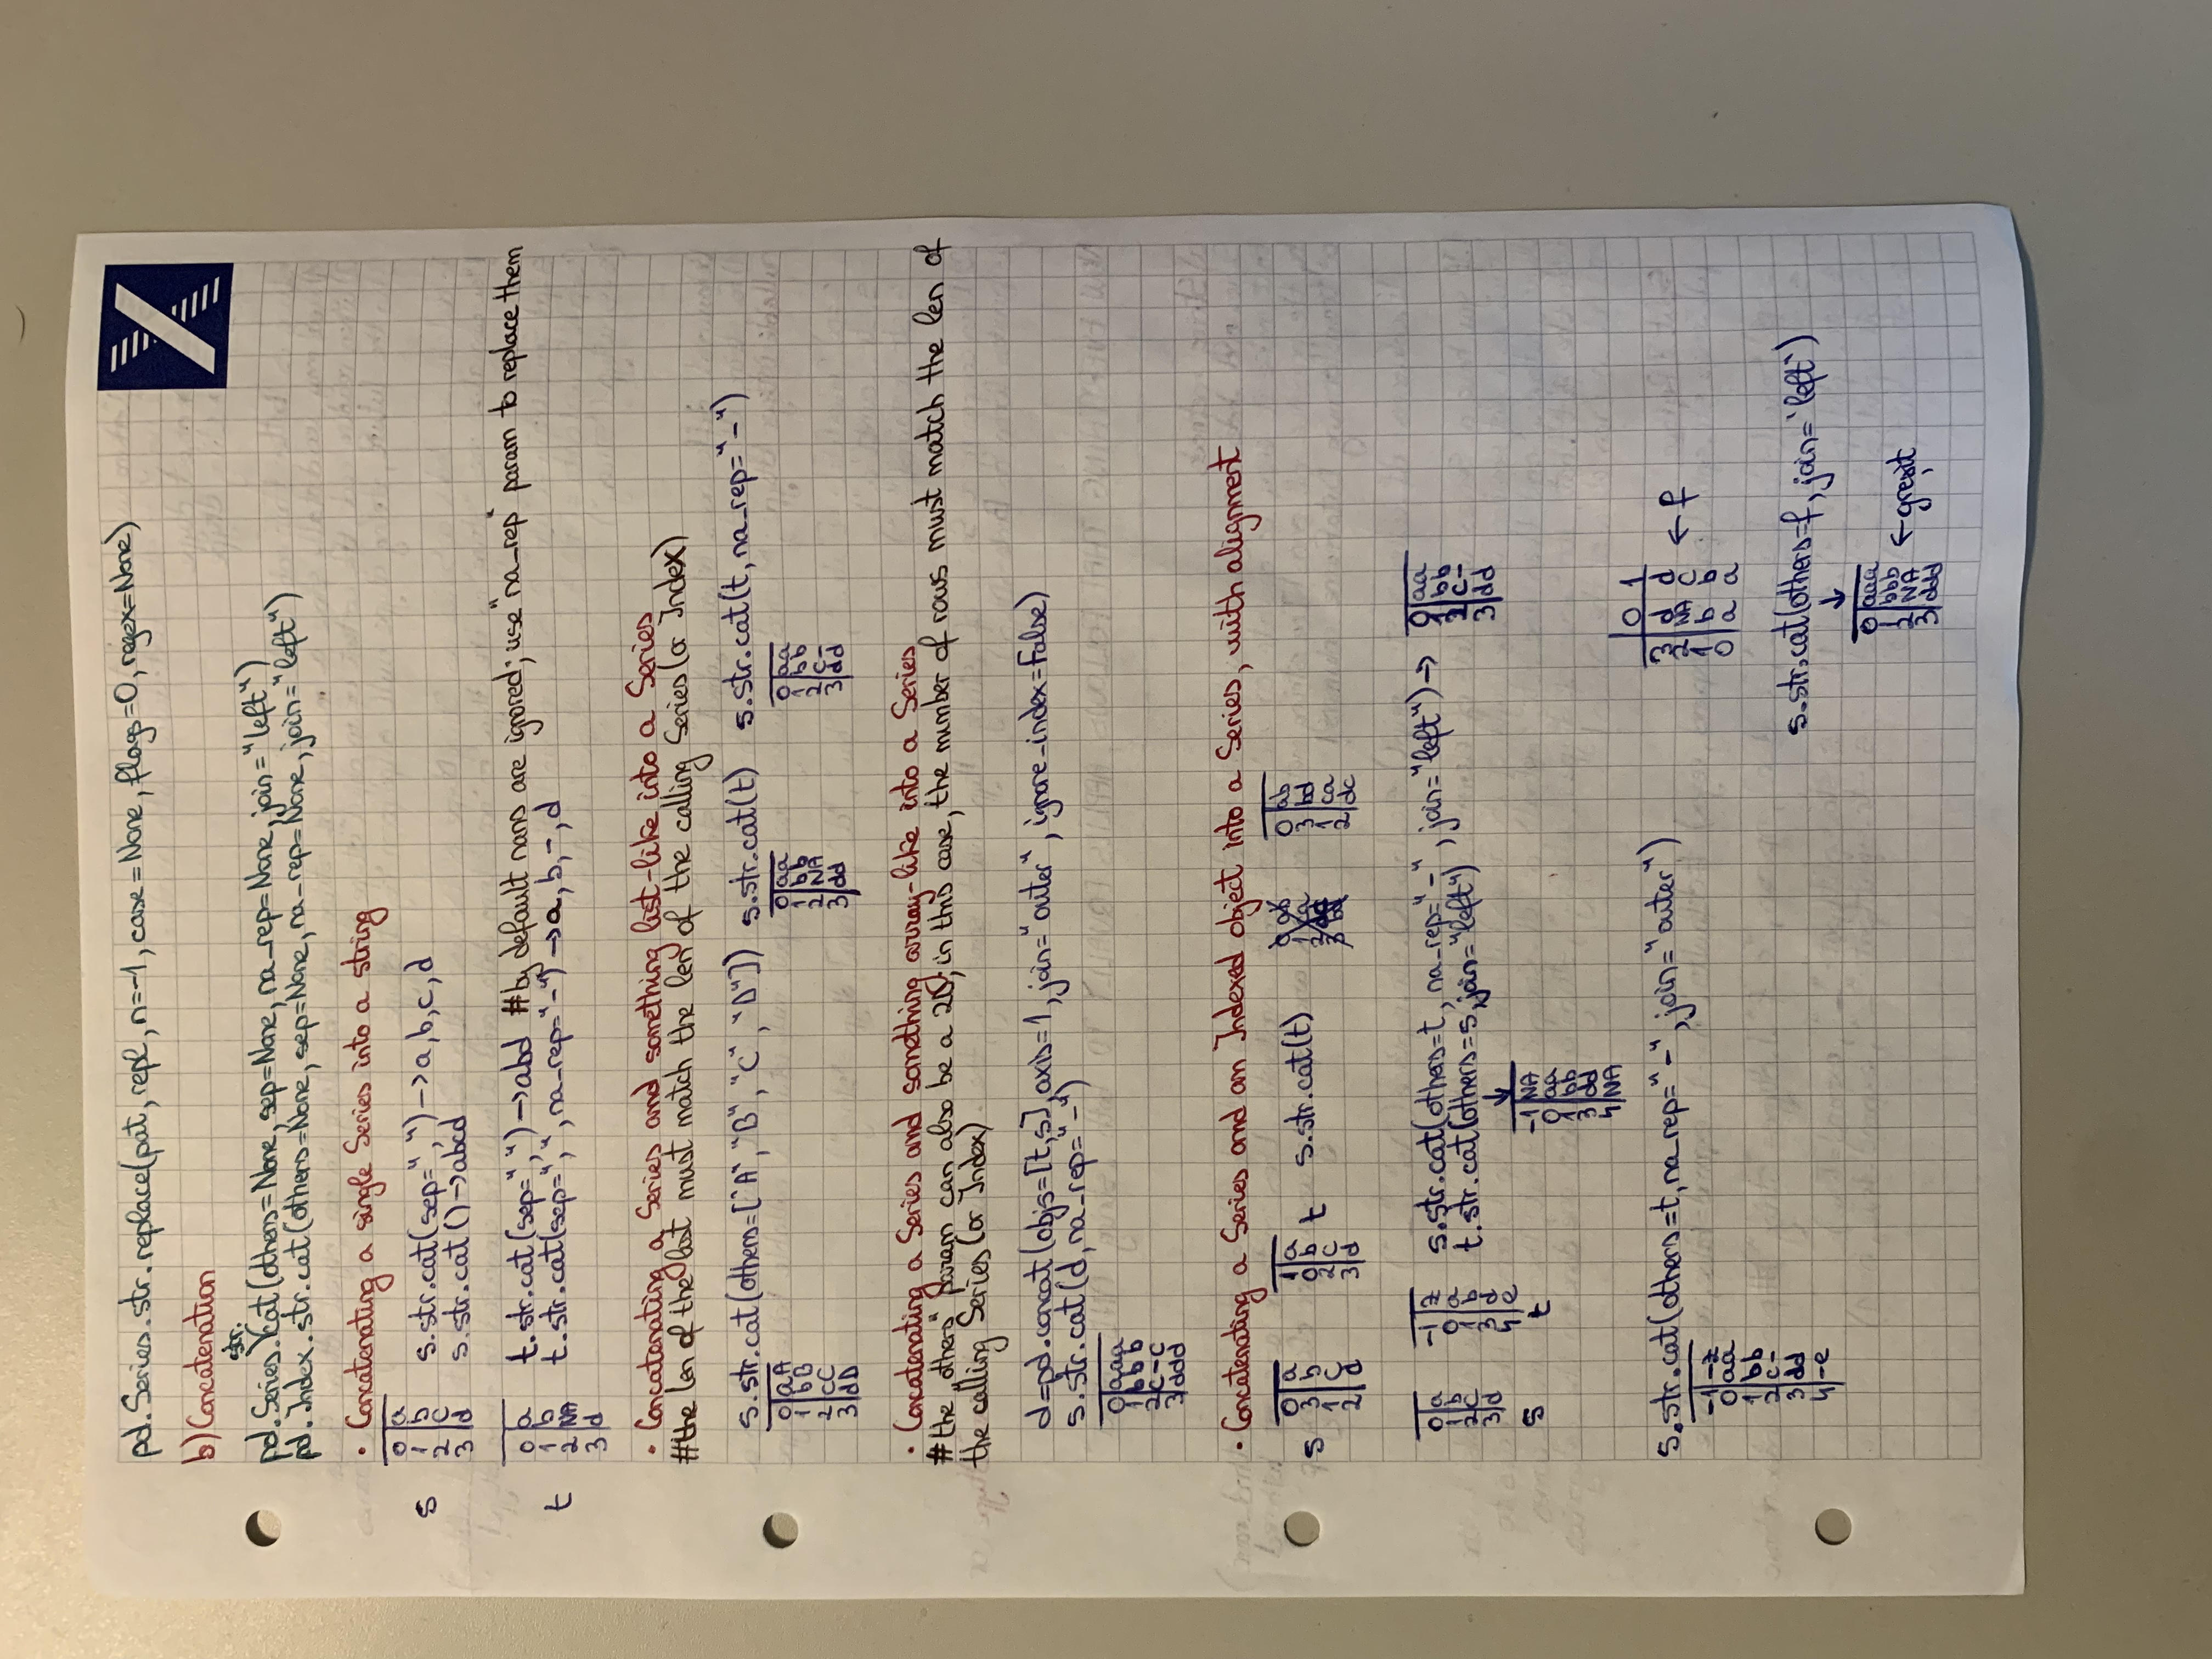 pd.Series.str.replace(pat, repl, n=-1, case=None, flags=0, regex=None)
b) Concatenation
pd.Series.str.cat(others=None, sep=None, na_rep=None, join="left")
pd.Index.str.cat(others=None, sep=None, na_rep=None, join="left")
• Concatenating a single Series into a string
s
0 a
1 b
2 c
3 d
s.str.cat(sep=",") -> a,b,c,d
s.str.cat() -> abcd
t
0 a
1 b
2 NA
3 d
t.str.cat(sep="") -> abd #by default nans are ignored; use "na_rep" param to replace them
t.str.cat(sep=",", na_rep="-") -> a,b,-,d
• Concatenating a Series and something list-like into a Series
#the len of the list must match the len of the calling Series (or Index)
s.str.cat(others=["A","B","C","D"]) s.str.cat(t) s.str.cat(t, na_rep="-")
0 aA
1 bB
2 cC
3 dD
0 aa
1 bb
2 NA
3 dd
0 aa
1 bb
2 c-
3 dd
• Concatenating a Series and something array-like into a Series
#the "others" param can also be a 2D; in this case, the number of rows must match the len of
the calling Series (or Index)
d=pd.concat(objs=[t,s], axis=1, join="outer", ignore_index=False)
s.str.cat(d, na_rep="-")
0 aaa
1 bbb
2 c-c
3 ddd
• Concatenating a Series and an Indexed object into a Series, with alignment
s
0 a
3 b
1 c
2 d
1 a
0 b
2 c
3 d
t s.str.cat(t)
0 ab
3 bd
1 ca
2 dc
0 a
1 b
2 c
3 d
s
-1 z
0 a
1 b
3 d
4 e
t
s.str.cat(others=t, na_rep="-", join="left") ->
t.str.cat(others=s, join="left")
0 aa
1 bb
2 c-
3 dd
-1 NA
0 aa
1 bb
3 dd
4 NA
s.str.cat(others=t, na_rep="-", join="outer")
-1 -z
0 aa
1 bb
2 c-
3 dd
4 -e
0 1
3 d d
2 NA c
1 b b
0 a a
<- f
s.str.cat(others=f, join='left')
0 aaa
1 bbb
2 NA
3 ddd